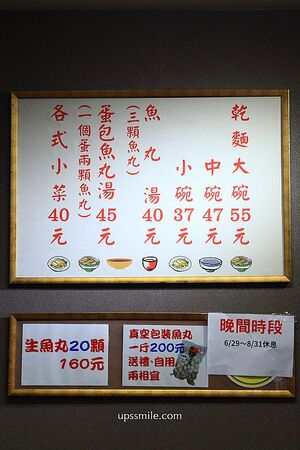 乾麵大碗55元
中碗47元
小碗37元
魚丸湯40元
(三顆魚丸)
蛋包魚丸湯45元
(一個蛋兩顆魚丸)
各式小菜40元
生魚丸20顆
160元
真空包裝魚丸
一斤200元
送禮、自用
兩相宜
晚間時段
6/29~8/31休息
upssmile.com